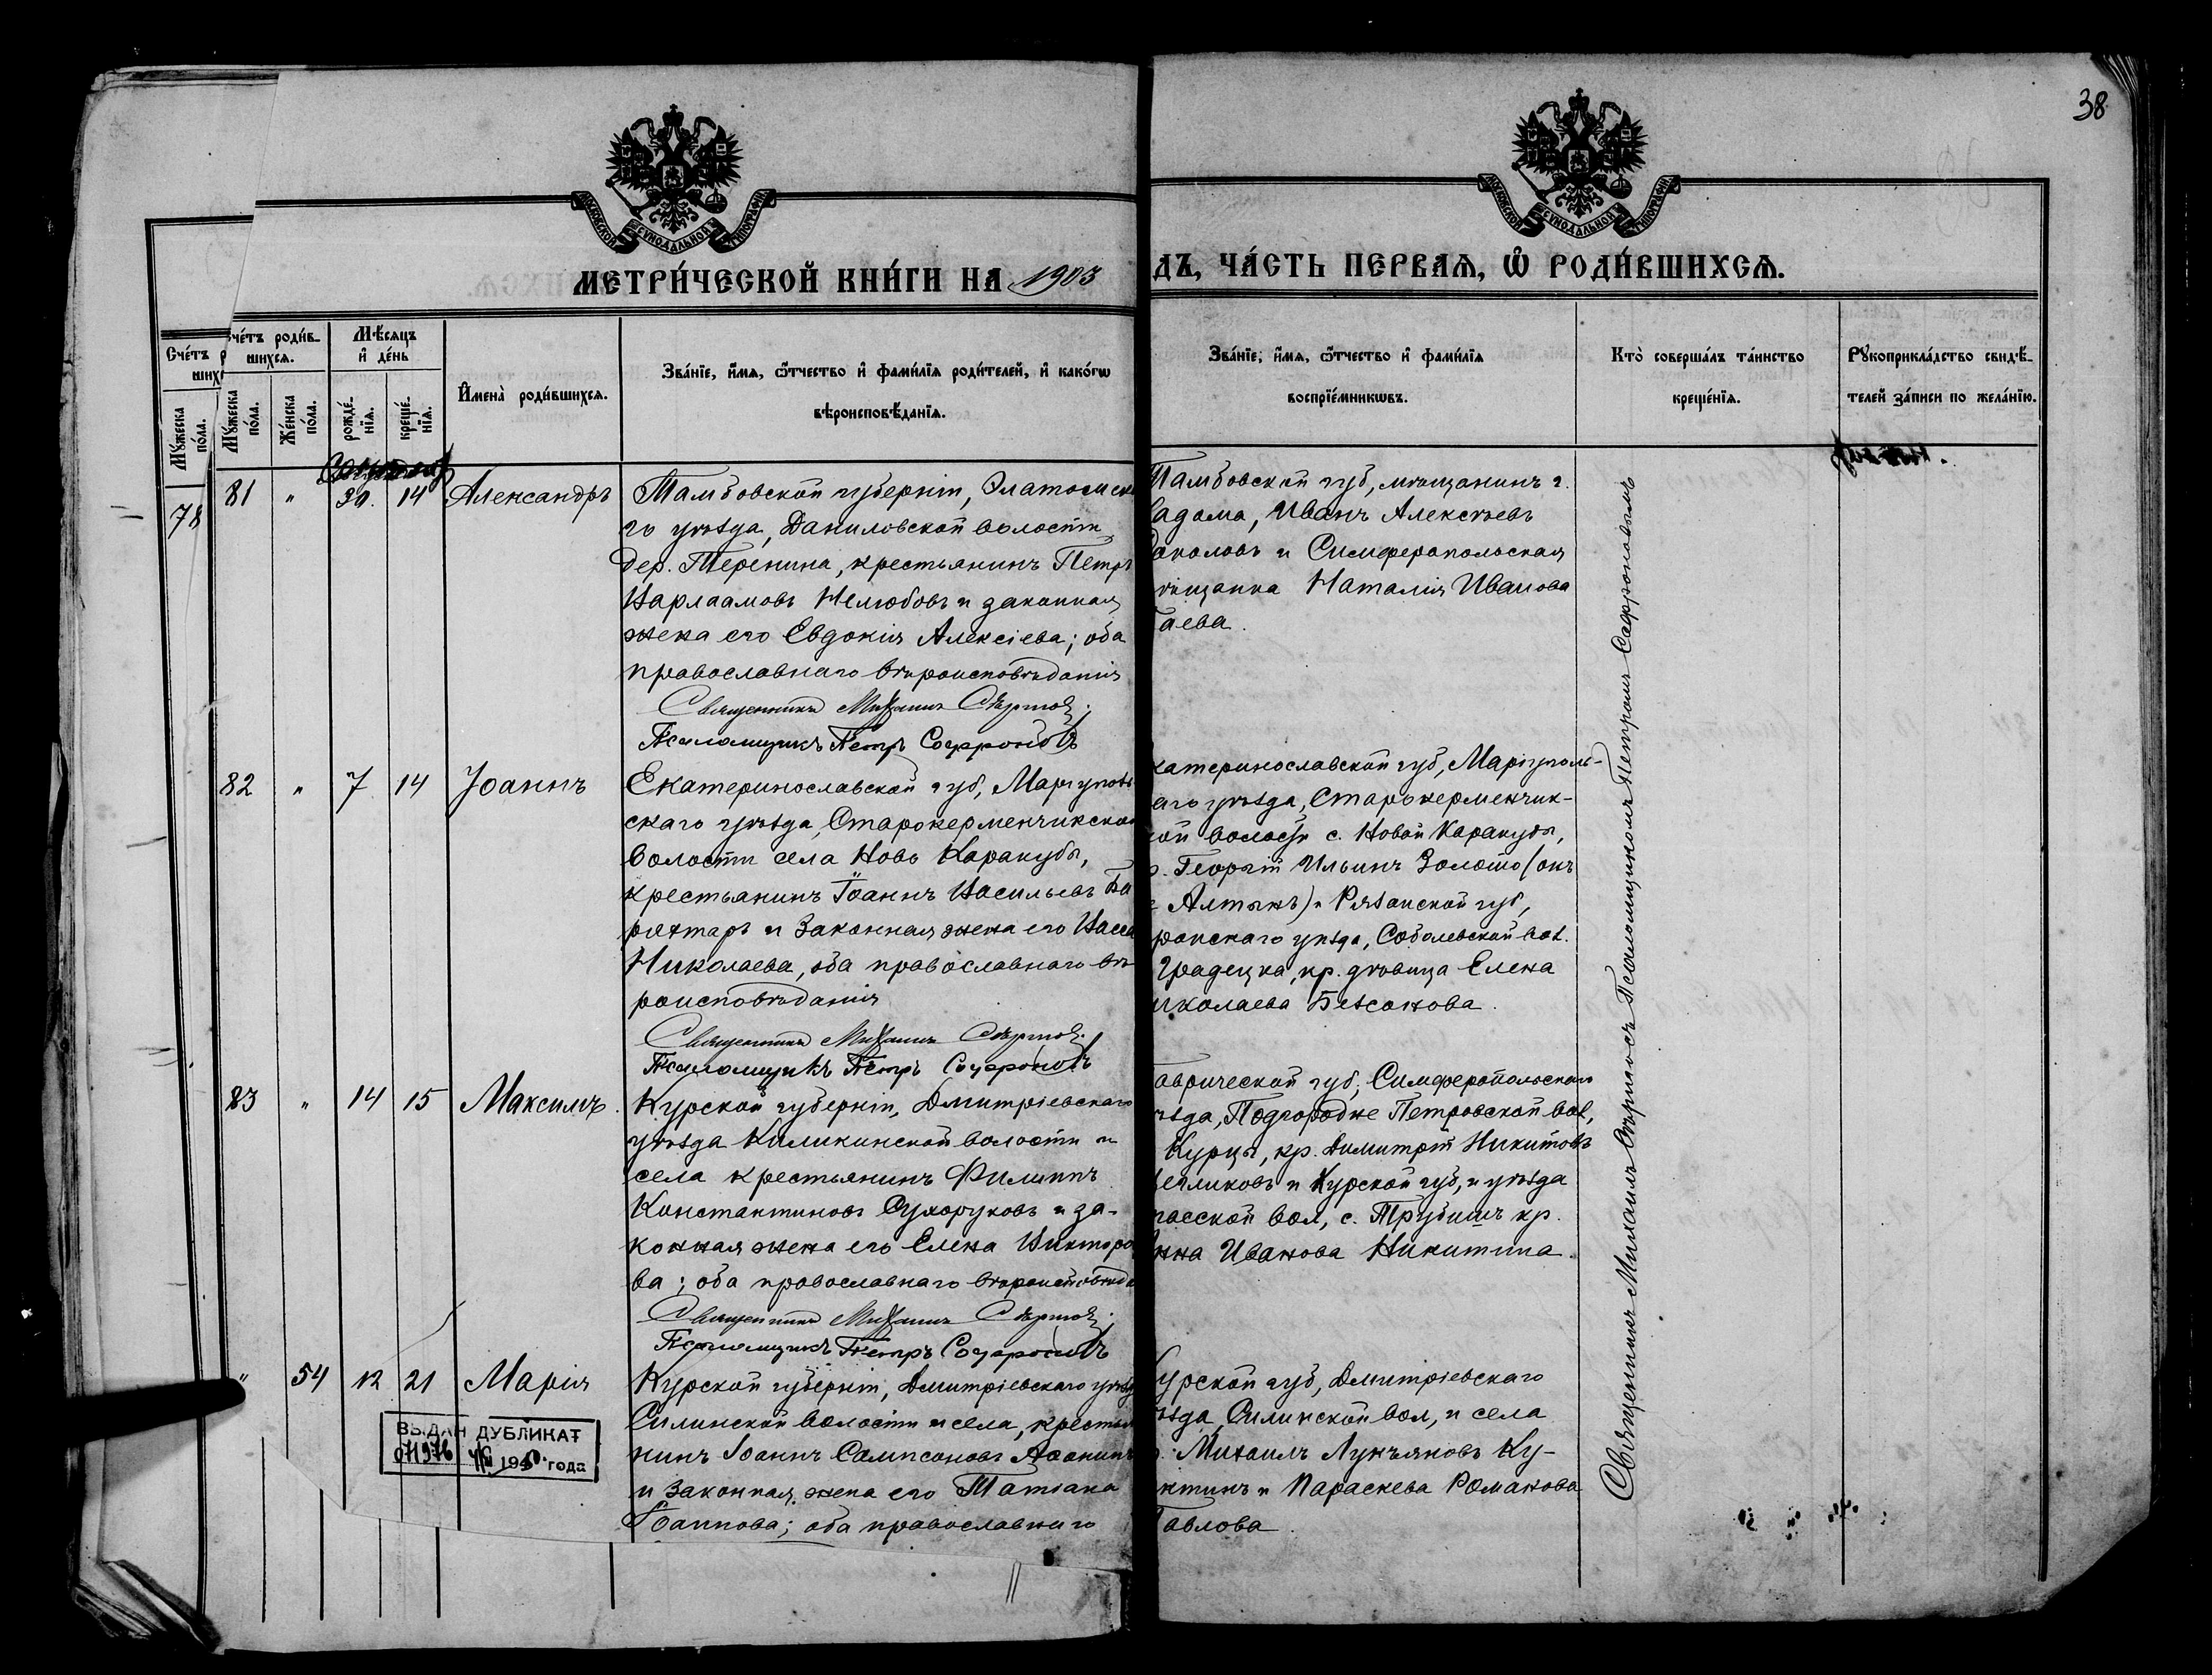 38
МОСКОВСКОЙ СѴНОДАЛЬНОЙ ТИПОГРАФІИ
МОСКОВСКОЙ СѴНОДАЛЬНОЙ ТИПОГРАФІИ
МЕТРИ́ЧЕСКОЙ КНИ́ГИ НА 1903
ДЪ, ЧА́СТЬ ПЕРВАѦ, Ѽ РОДИ́ВШИХСѦ.
Счéтъ
ших
Мꙋжеска пóла.
счéтъ родѝв-
шихсѧ.
Мꙋжеска пóла.
Жéнска пóла.
Мѣ́сѧцъ
и҆ дéнь
рождé-нїѧ.
крещé-нїѧ.
И҆менà роди́вшихсѧ.
Звáнїе, и҆́мѧ, ѻ҆́тчество и҆ фами́лїѧ роди́телей, и҆ какóгѡ
вѣроисповѣ́данїѧ.
Звáнїе, и҆́мѧ, ѻ҆́тчество и҆ фами́лїѧ
воспрїéмникѡвъ.
Ктò совершáлъ тáинство
крещéнїѧ.
Рꙋкоприклáдство свидѣ́-
телей зáписи по желáнїю.
78
81 " 30. 14 Александръ
Тамбовской губерніи, Элатомск
го уѣзда, Даниловской волости,
дер. Теренина, крестьянинъ Петръ
Варлаамовъ Нелюбовъ и законная
жена его Евдокія Алексіева; оба
православнаго вѣроисповѣданія
Священникъ Михаилъ Сѣрповъ.
Псаломщикъ Петръ Софроновъ
Тамбовской губ, мѣщанинъ г.
адома, Иванъ Алексѣевъ
околовъ и Симферопольская
ѣщанка Наталія Иванова
аева.
82 " 7 14 Іоаннъ
Екатеринославской губ, Маріуполь
скаго уѣзда, Старокерменчикской
волости села Ново Каракубы,
крестьянинъ Іоаннъ Васильевъ Ба
рахтаръ и законная жена его Васса
Николаева, оба православнаго вѣ
роисповѣданія
Священникъ Михаилъ Сѣрповъ.
Псаломщикъ Петръ Софроновъ
катеринославской губ, Маріуполь-
аго уѣзда, Старокерменчик-
ой волости с. Новой Каракубы,
р. Георгій Ильинъ Золото (онъ
е Алтынъ) и Рязанской губ,
ронскаго уѣзда, Соболевской вол.
Градецка, кр. дѣвица Елена
иколаева Безсонова.
83 " 14 15 Максимъ.
Курской губерніи, Дмитріевскаго
уѣзда Киликинской волости и
села крестьянинъ Филиппъ
Константиновъ Сухоруковъ и за-
конная жена его Елена Викторо
ва; оба православнаго вѣроисповѣда
Священникъ Михаилъ Сѣрповъ.
Псаломщикъ Петръ Софроновъ
аврической губ, Симферопольскаго
ѣзда, Подгородне Петровской вол,
Курцы, кр. Димитрій Никитовъ
и Курской губ, и уѣзда
вол, с. кр.
нна Иванова Никитина.
" 54 12 21 Марія
Курской губерніи, Дмитріевскаго уѣзд
Силинской волости и села, крестья
нинъ Іоаннъ Сампсоновъ Аѳонинъ
и законная жена его Татіана
Іоаннова; оба православнаго
урской губ, Дмитріевскаго
ѣзда, Силинской вол, и села
р. Михаилъ Лукъяновъ Ку-
ктинъ и Параскева Романова
авлова.
ВЫДАН ДУБЛИКАТ
194 года
Священникъ Михаилъ Сѣрповъ съ Псаломщикомъ Петромъ Софроновымъ